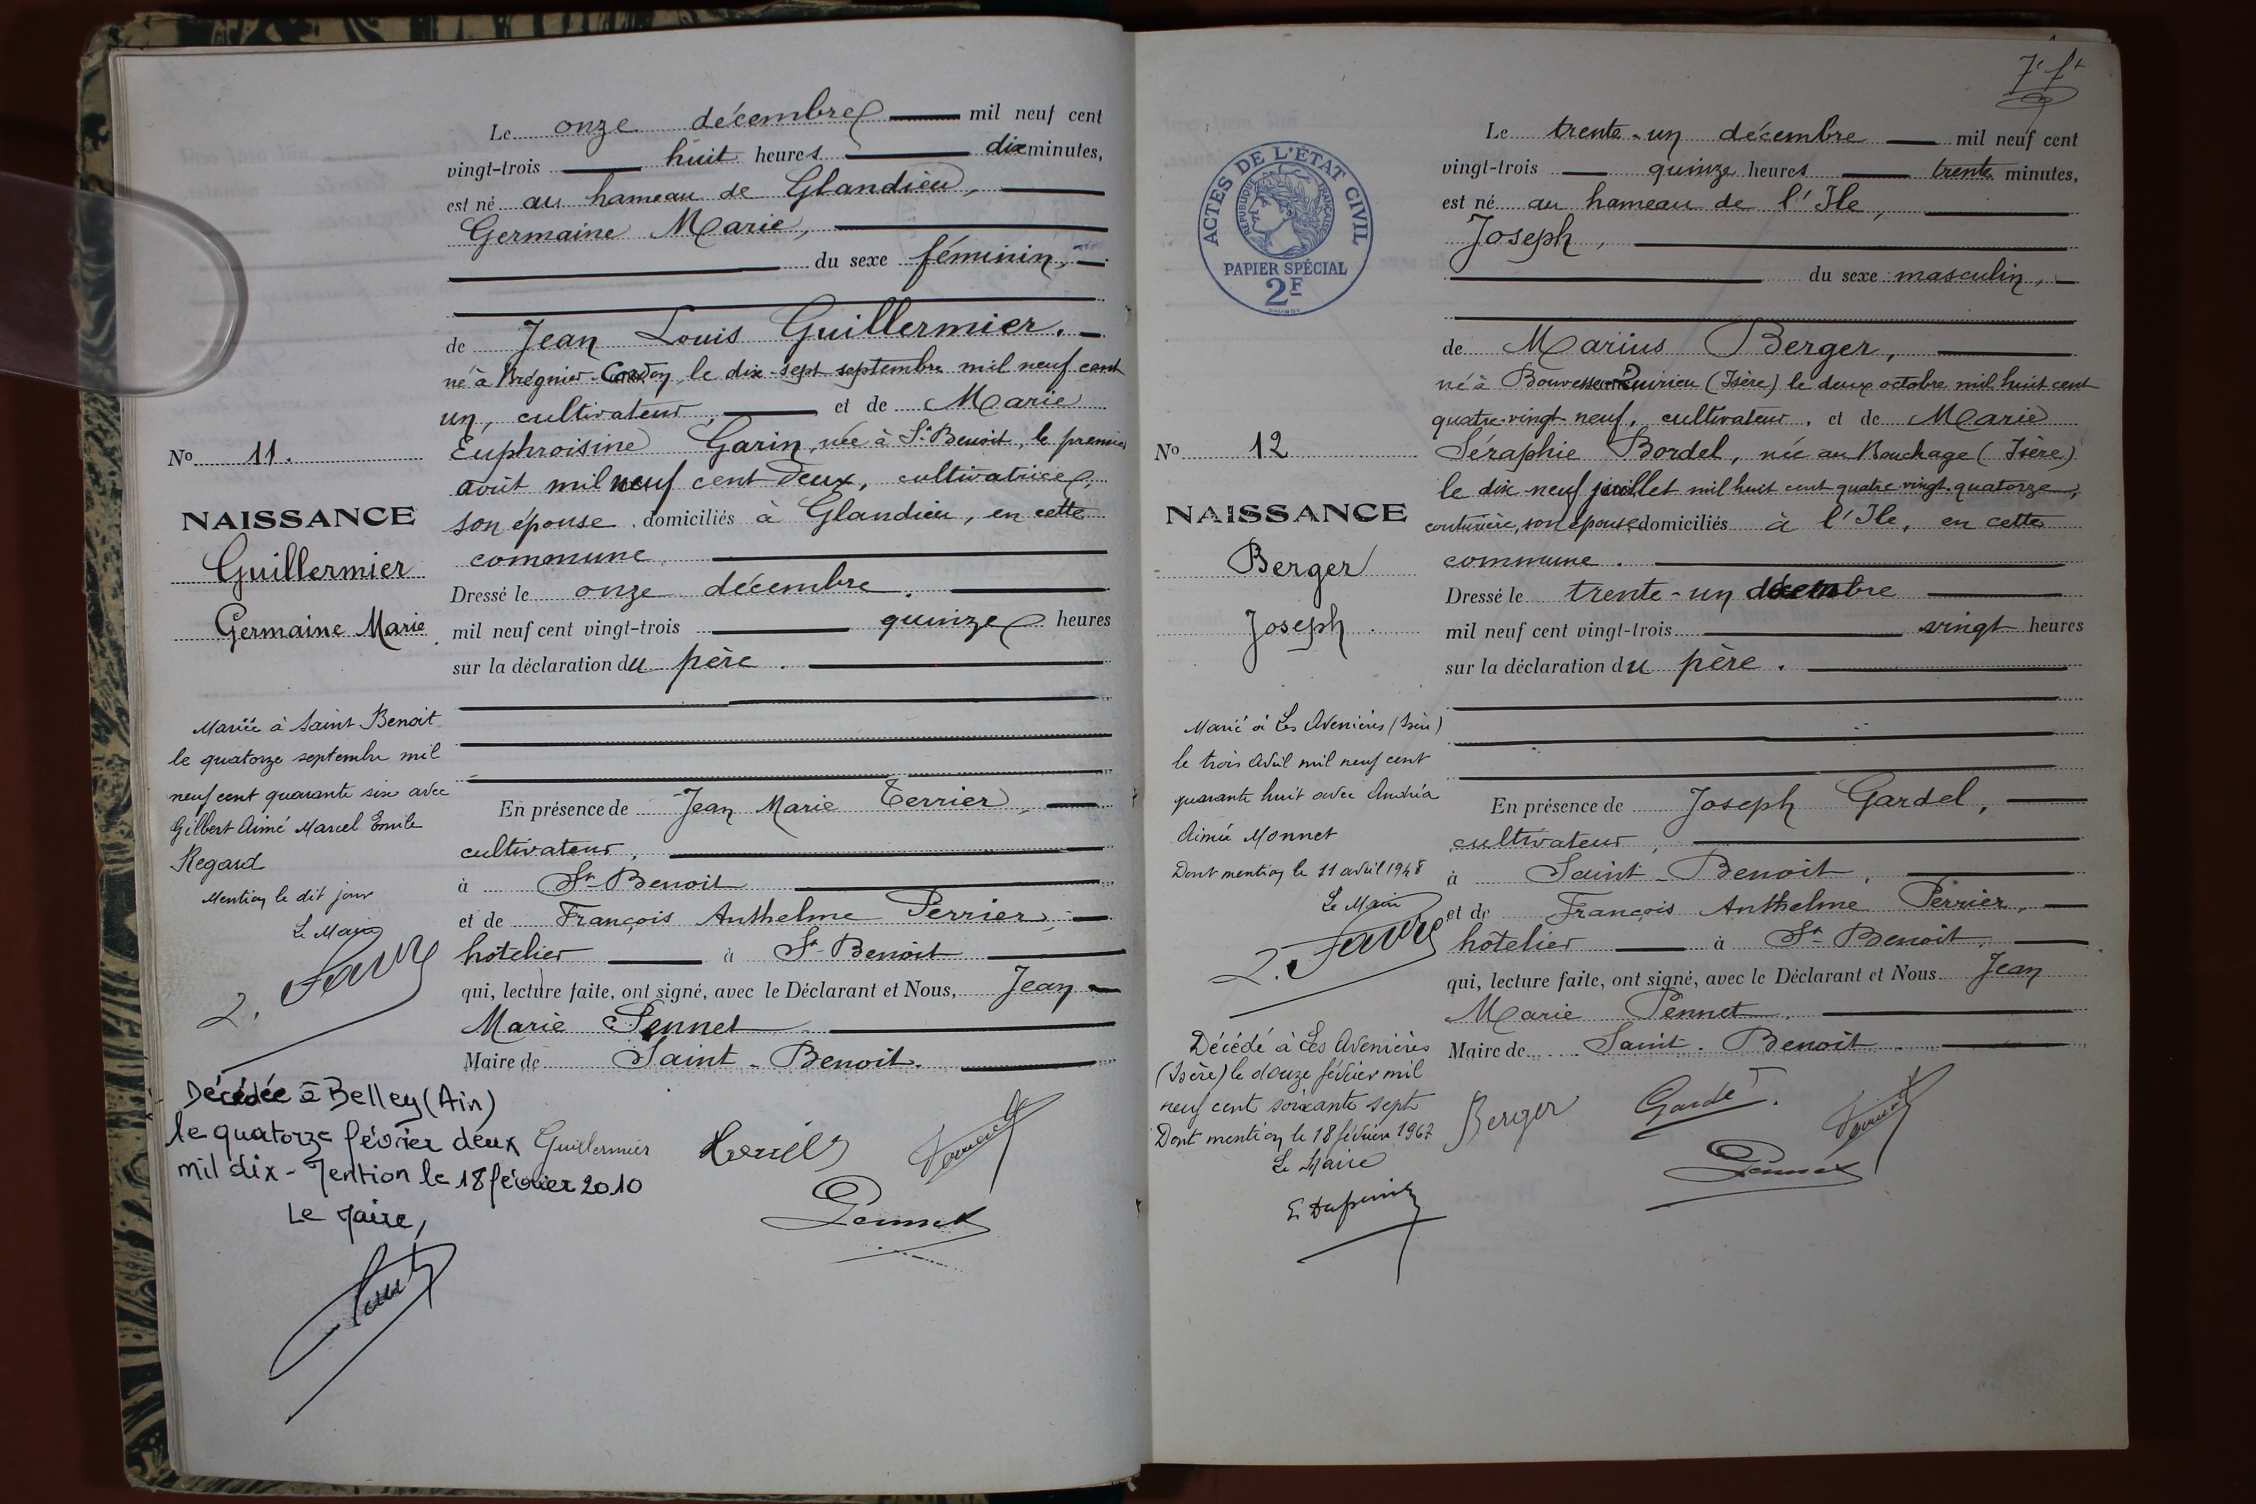 Le onze décembre mil neuf cent
vingt-trois huit heures dix minutes,
est né au hameau de Glandieu,
Germaine Marie,
du sexe féminin,
de Jean Louis Guillermier.
né à Brégnier-Cordon, le dix-sept septembre mil neuf cent
un, cultivateur, et de Marie
Euphroisine Garin, née à St Benoit, le premier
août mil neuf cent deux, cultivatrice,
son épouse, domiciliés à Glandieu, en cette
commune.
Dressé le onze décembre.
mil neuf cent vingt-trois quinze heures
sur la déclaration du père.
En présence de Jean Marie Terrier,
cultivateur,
à St Benoit
et de François Anthelme Perrier,
hôtelier à St Benoit
qui, lecture faite, ont signé, avec le Déclarant et Nous, Jean
Marie Pennet
Maire de Saint-Benoit.
Guillermier
Pennet
No 11.
NAISSANCE
Guillermier
Germaine Marie
Mariée à Saint Benoit
le quatorze septembre mil
neuf cent quarante six avec
Gilbert Aimé Marcel Emile
Regard
Mention le dit jour
Le Maire
L. Favre
Décédée à Belley (Ain)
le quatorze février deux
mil dix - Mention le 18 février 2010
Le Maire,
7e ft
ACTES DE L'ÉTAT CIVIL
REPUBLIQUE FRANÇAISE
PAPIER SPÉCIAL
2F
Le trente-un décembre mil neuf cent
vingt-trois quinze heures trente minutes,
est né au hameau de l'Ile,
Joseph,
du sexe masculin,
de Marius Berger,
né à Bouvesse-Quirieu (Isère) le deux octobre mil huit cent
quatre-vingt-neuf, cultivateur, et de Marie
Séraphie Bordel, née au Bouchage (Isère)
le dix neuf juillet mil huit cent quatre vingt-quatorze,
couturière, son épouse, domiciliés à l'Ile, en cette
commune.
Dressé le trente-un décembre
mil neuf cent vingt-trois vingt heures
sur la déclaration du père.
En présence de Joseph Gardel,
cultivateur,
à Saint-Benoit,
et de François Anthelme Perrier,
hôtelier à St Benoit,
qui, lecture faite, ont signé, avec le Déclarant et Nous Jean
Marie Pennet.
Maire de Saint-Benoit.
Berger
Pennet
No 12
NAISSANCE
Berger
Joseph
Marié à Les Avenières (Isère)
le trois Avril mil neuf cent
quarante huit avec Andréa
Aimée Monnet
Dont mention le 11 avril 1948
Le Maire
L. Favre
Décédé à Les Avenières
(Isère) le douze février mil
neuf cent soixante sept
Dont mention le 18 février 1967
Le Maire